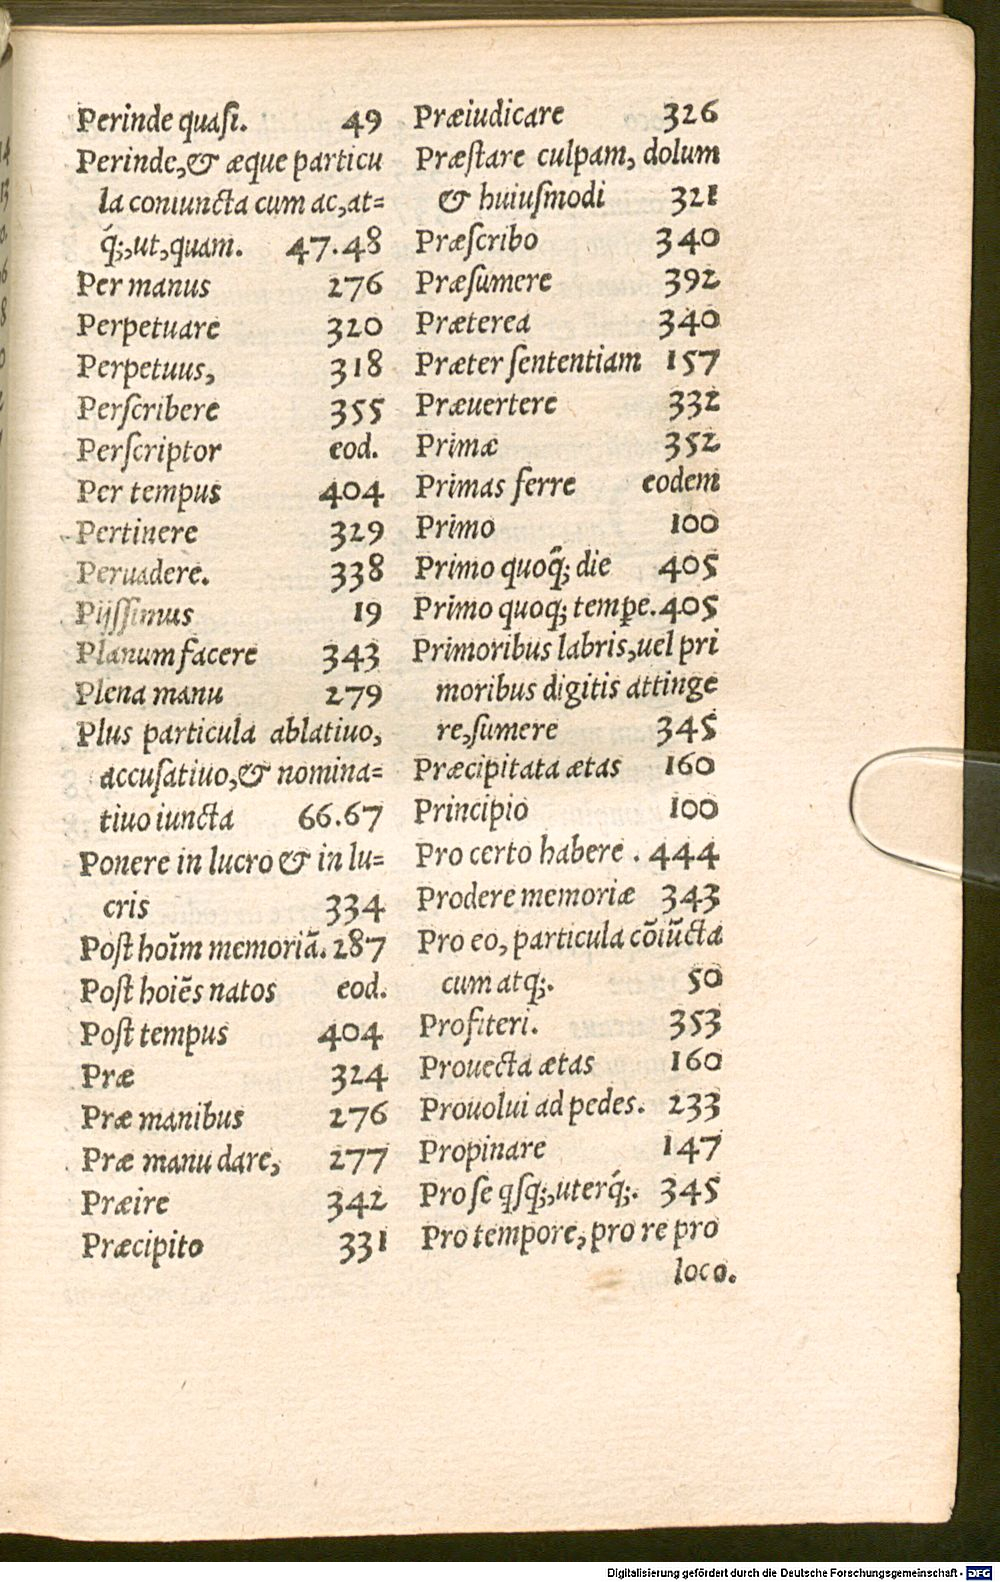 Perinde quaſi. 49
Perinde, & æque particu
la coniuncta cum ac, at=
q́;, ut, quam. 47.48
Per manus 276
Perpetuare 320
Perpetuus, 318
Perſcribere 355
Perſcriptor eod.
Per tempus 404
Pertinere 329
Peruadere. 338
Pijſſimus 19
Planum facere 343
Plena manu 279
Plus particula ablatiuo,
accuſatiuo, & nomina=
tiuo iuncta 66.67
Ponere in lucro & in lu=
cris 334
Poſt hoīm memoriā. 287
Poſt hoiēs natos eod.
Poſt tempus 404
Præ 324
Præ manibus 276
Præ manu dare, 277
Præire 342
Præcipito 331
Præiudicare 326
Præſtare culpam, dolum
& huiuſmodi 321
Præſcribo 340
Præſumere 392
Præterea 340
Præter ſententiam 157
Præuertere 332
Primæ 352
Primas ferre eodem
Primo 100
Primo quoq́; die 405
Primo quoq; temp̱e. 405
Primoribus labris, uel pri
moribus digitis attinge
re, ſumere 345
Præcipitata ætas 160
Principio 100
Pro certo habere . 444
Prodere memoriæ 343
Pro eo, particula cōiūcta
cum atq;. 50
Profiteri. 353
Prouecta ætas 160
Prouolui ad pedes. 233
Propinare 147
Pro ſe qſq;, uterq́;. 345
Pro tempore, pro re pro
loco.
Digitalisierung gefördert durch die Deutsche Forschungsgemeinschaft - DFG